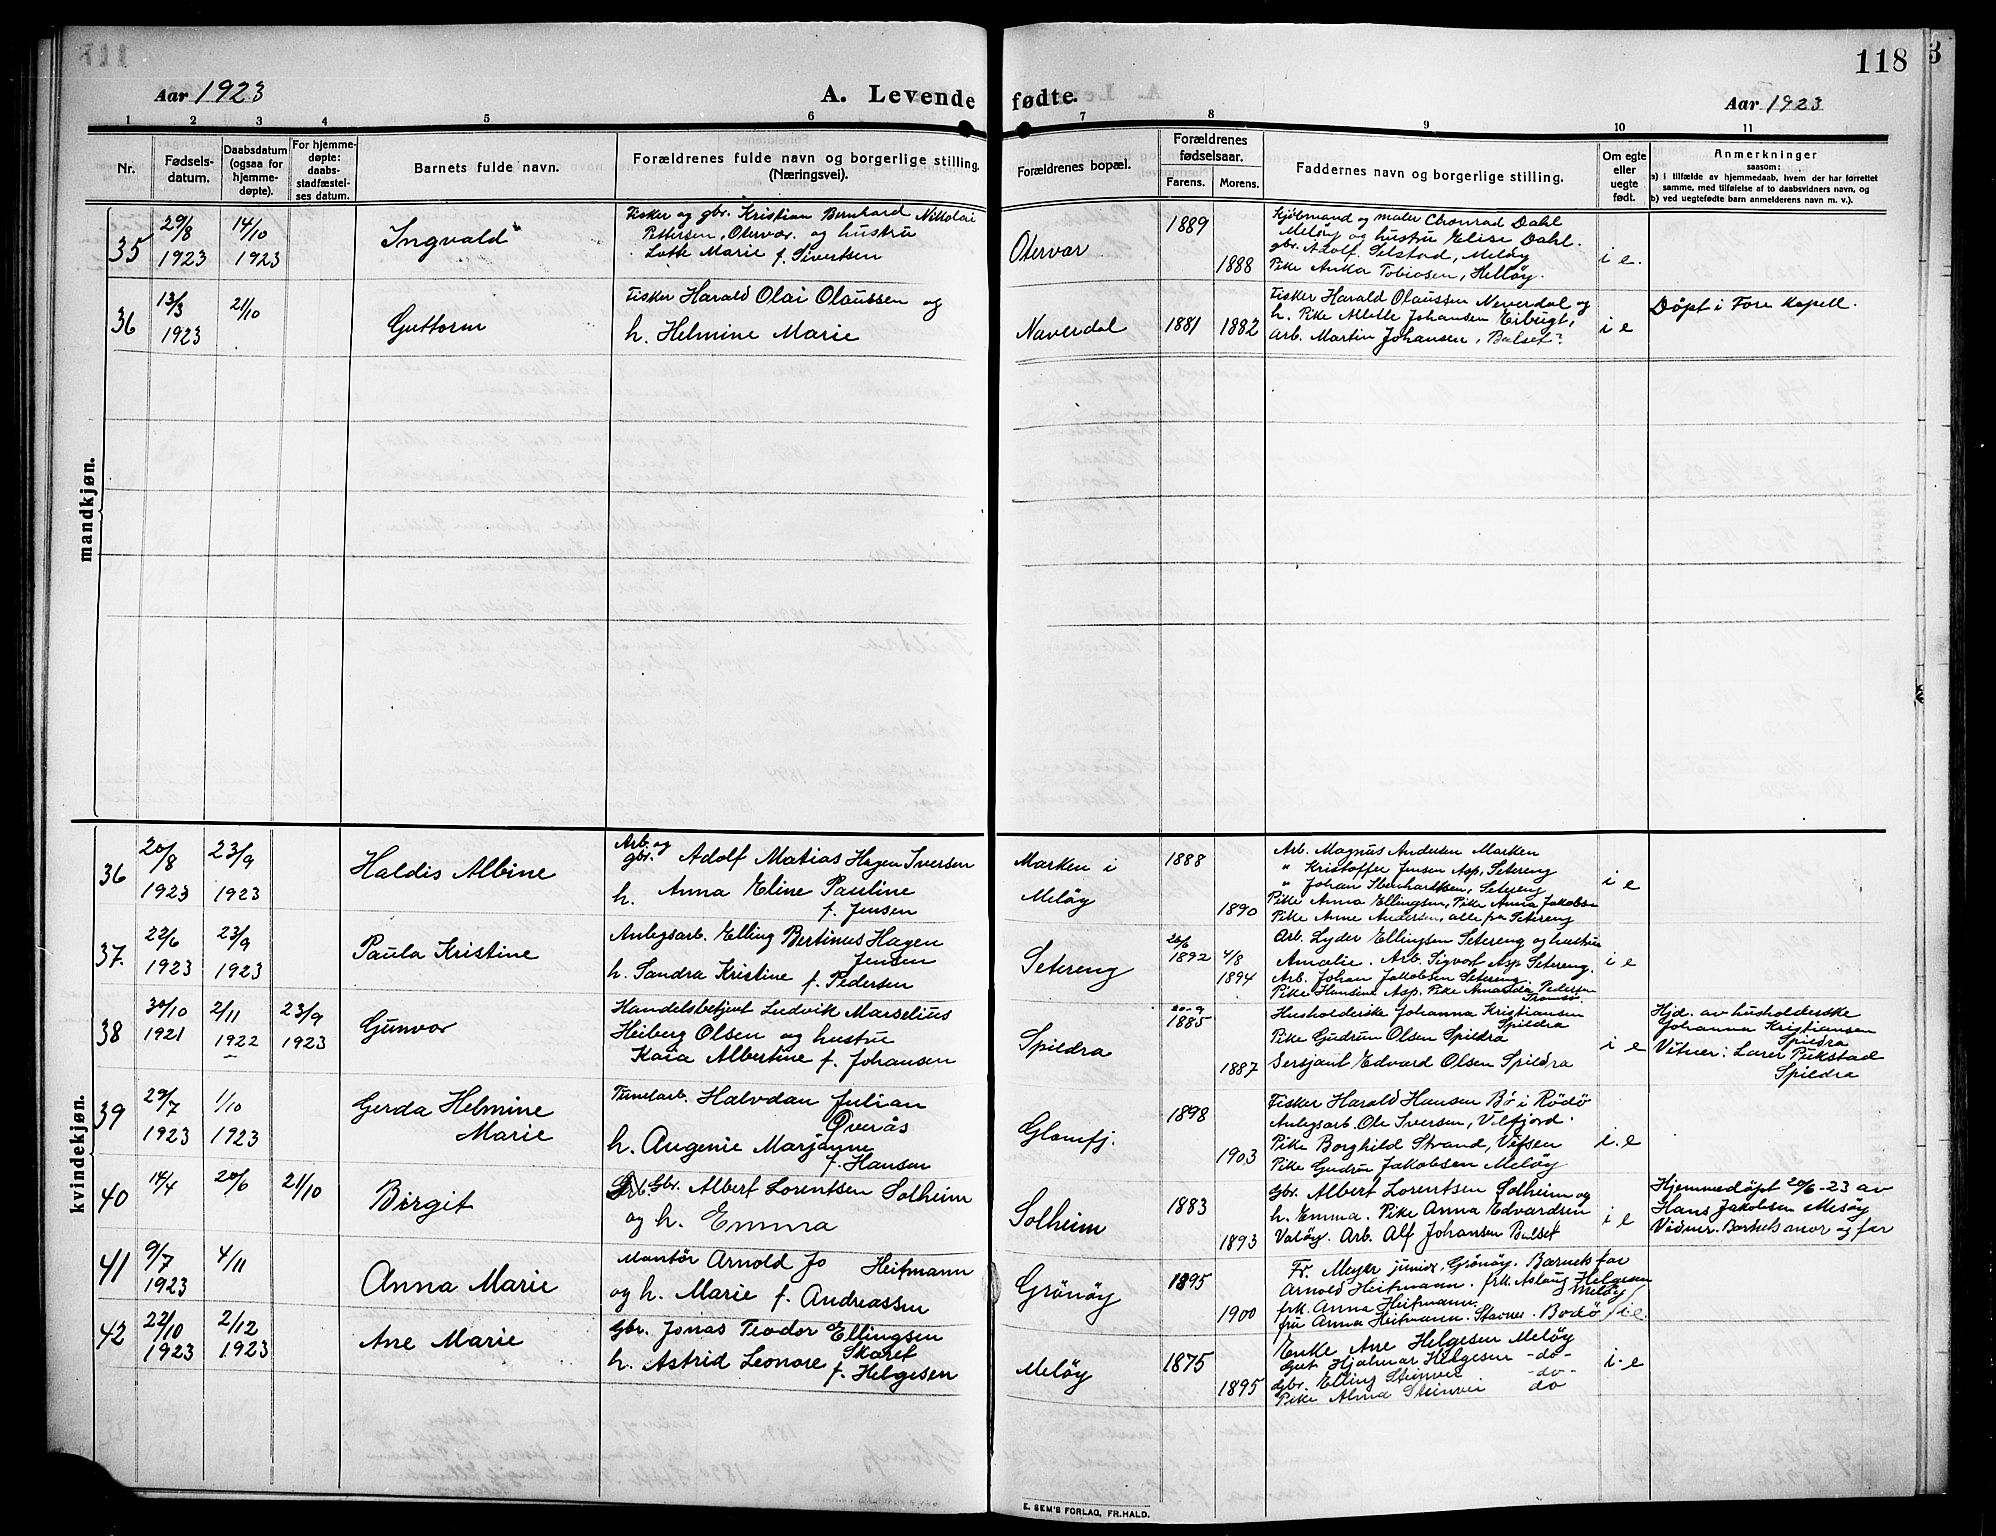 118
Aar 1923
A. Levende fødte.
Aar 1923
1 2 3 4 5 6 7 8 9 10 11
Nr.
Fødsels-
datum.
Daabsdatum
(ogsaa for
hjemme-
døpte).
For hjemme-
døpte:
daabs-
stadfæstel-
ses datum.
Barnets fulde navn.
Forældrenes fulde navn og borgerlige stilling.
(Næringsvei).
Forældrenes bopæl.
Forældrenes
fødselsaar.
Farens. Morens.
Faddernes navn og borgerlige stilling.
Om egte
eller
uegte
født.
Anmerkninger
saasom:
a) i tilfælde av hjemmedaab, hvem der har forrettet
samme, med tilføielse af to daabsvidners navn, og
b) ved uegtefødte barn anmelderens navn m. v.).
mandkjøn.
35
29/8
1923
14/10
1923
Ingvald
Fisker og gbr. Kristian Bernhard Nikolai
Pettersen, Otervær. og hustru
Lotte Marie f. Sivertsen
Otervær
1889
1888
Kjøbmand og maler Chonrad Dahl
Meløy og hustru Elise Dahl.
gbr. Adolf Selstad, Meløy
Pike Anka Tobiasen, Meløy.
i e.
36
13/3
1923
21/10
Guttorm
Fisker Harald Olai Olaussen og
h. Helmine Marie
Neverdal
1881
1882
Fisker Harald Olaussen Neverdal og
h. Pike Johansen Eibugt,
Arb. Martin Johansen, Balset?
i e
Døpt i Fore kapell.
kvindekjøn.
36
20/8
1923
23/9
1923
Haldis Albine
Arb. og
gbr. Adolf Matias Hagen Iversen
h. Anna Eline Pauline
f. Jensen
Marken i
Meløy
1888
1890
Arb. Magnus Andersen Marken
" Kristoffer Jensen Asp, Setereng
" Johan Setereng
Pike Anna Ellingsen, Pike Anna Jakobsen
Pike Anne Andersen, alle fra Setereng
i e
37.
22/6
1923
23/9
1923
Paula Kristine
Anlegsarb. Elling Bertinus Hagen
Jensen
h. Sandra Kristine f. Pedersen
Setereng
20/6
1892
4/8
1894
Arb. Lyder Ellingsen Setereng og hustru
Amalie. Arb. Sigvart Asp Setereng.
Arb. Johan Jakobsen Setereng
Pike Hansine Asp. Pike Amanda Pedersen
Tromsø.
i e
38
30/10
1921
2/11
1922
23/9
1923
Gunvor
Handelsbetjent Ludvik Marselius
Heiberg Olsen og hustru
Kaia Albertine f. Johansen
Spildra
20-9
1885
1887
Husholderske Johanna Kristiansen
Spildra
Pike Gudrun Olsen Spildra
Sersjant Edvard Olsen Spildra
i e
Hjd. av husholderske
Johanna Kristiansen
Spildra
Vitner: Pikstad
Spildra
39
29/7
1923
1/10
1923
Gerda Helmine
Marie
Tunelarb. Halvdan Julian
Øverås
h. Augenie Marjanne
f. Hansen
Glomfj.
1898
1903
Fisker Harald Hansen Bø i Rödö
Anlegsarb. Ole Iversen, Velfjord.
Pike Borghild Strand, Vefsen
Pike Gudrun Jakobsen Meløy
i. e
40
14/4
20/6
21/10
Birgit
Gbr. Albert Lorentsen Solheim
og h. Emma
Solheim
1883
1893
Gbr. Albert Lorentsen Solheim og
h. Emma. Pike Anna Edvardsen
Valøy. Arb. Alf Johansen Balset
i e
Hjemmedøpt 20/6-23 av
Hans Jakobsen Mesøy
Vidner. Barnets mor og far
41
9/7
1923
4/11
Anna Marie
Montør Arnold Jo Heitmann
og h. Marie f. Andreassen
Grönöy
1895
1900
Fr. Meyer junior, Grönöy. Barnets far
Arnold Heitmann. frk. Aslaug Helgesen
Meløy
frk. Anna Heitmann.
fru Anna Heitmann. Stavnes. Bodø
i e.
42
22/10
1923
2/12
1923
Ane Marie
Gbr. Jonas Teodor Ellingsen
Skaret
h. Astrid Leonore f. Helgesen
Meløy
1875
1895
Enke Ane Helgesen Meløy
Gut Hjalmar Helgesen -do-
Gbr. Elling Steinvei -do-
Pike Alma Steinvei do
i-e
E. SEM'S FORLAG, FR.HALD.